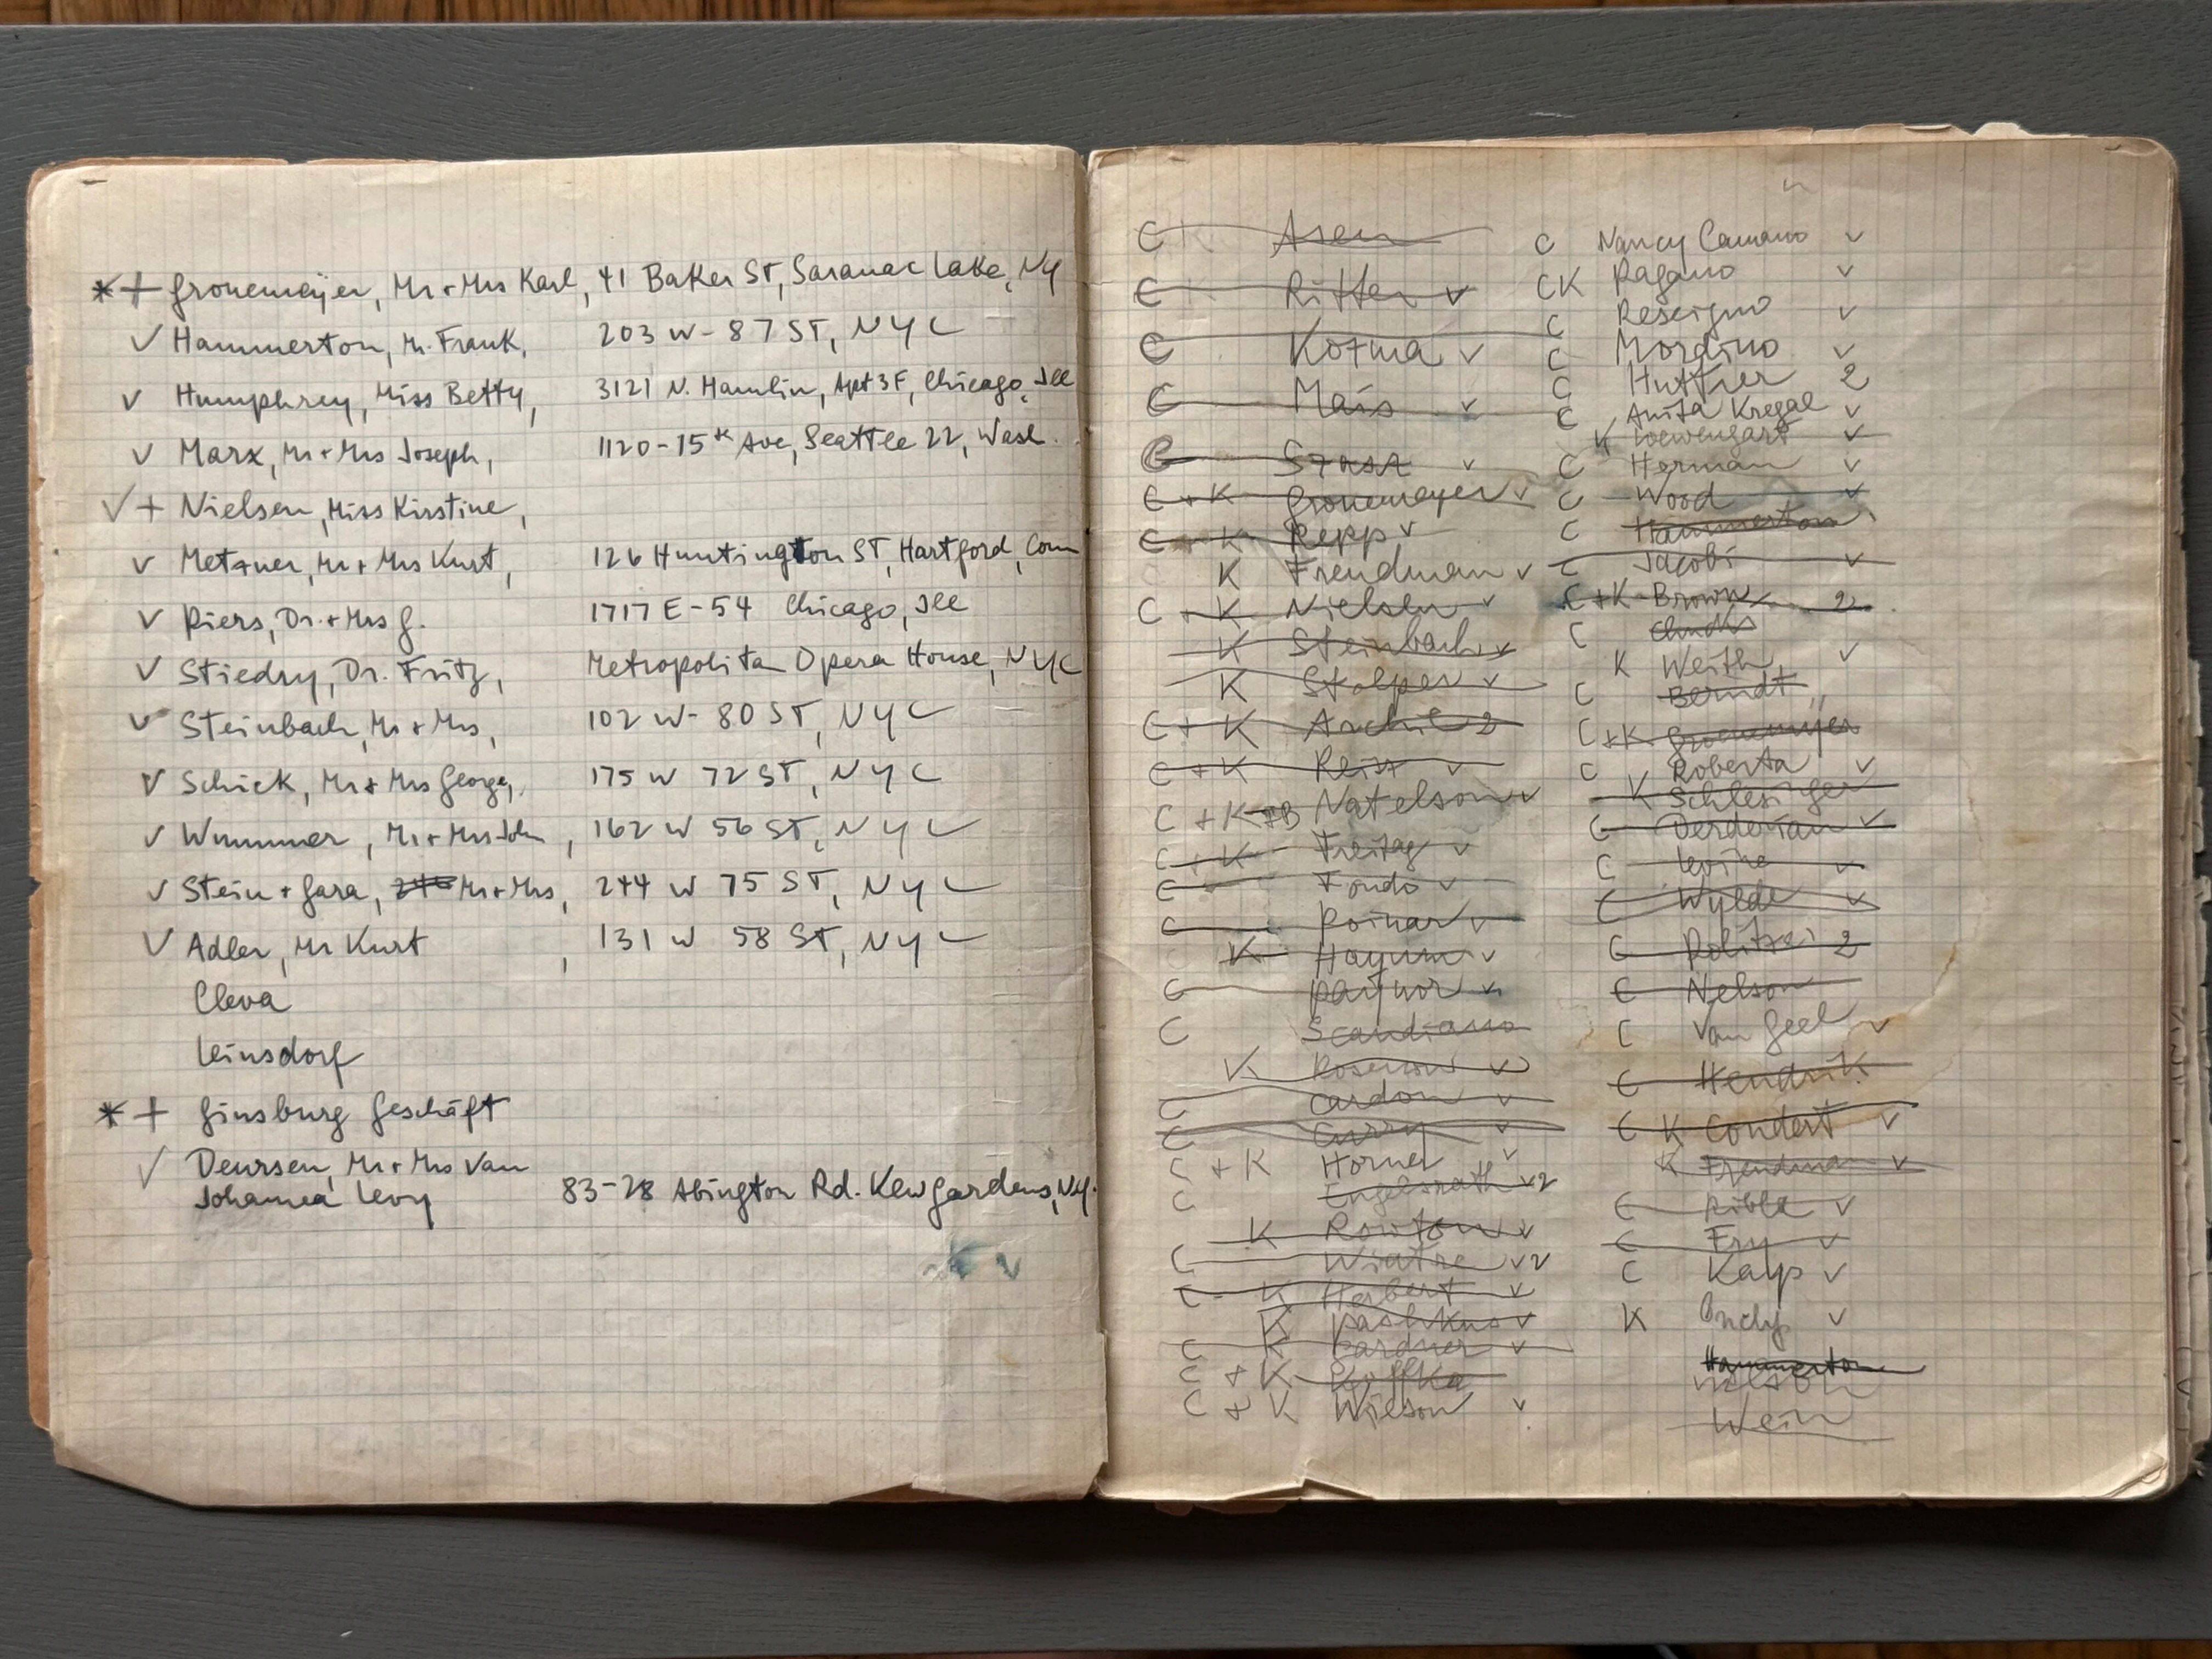 *+ Gronemeyer, Mr + Mrs Karl, 41 Baker ST, Saranac Lake, NY
✓ Hammerton, Mr. Frank, 203 W - 87 ST, NYC
✓ Humphrey, Miss Betty, 3121 N. Hamlin, Apt 3F, Chicago, Ill
✓ Marx, Mr + Mrs Joseph, 1120 - 15th Ave, Seattle 22, Wash.
✓ + Nielsen, Miss Kirstine,
✓ Metzner, Mr + Mrs Kurt, 126 Huntington ST, Hartford, Conn
✓ Piers, Dr. + Mrs G. 1717 E - 54 Chicago, Ill
✓ Stiedry, Dr. Fritz, Metropolitan Opera House, NYC
✓ Steinbach, Mr + Mrs, 102 W - 80 ST, NYC
✓ Schick, Mr + Mrs George, 175 W 72 ST, NYC
✓ Wummer, Mr + Mrs John, 162 W 56 ST, NYC
✓ Stein + Gara, Mr + Mrs, 244 W 75 ST, NYC
✓ Adler, Mr Kurt, 131 W 58 ST, NYC
Cleva
Leinsdorf
*+ Ginsburg Geschäft
✓ Deursen, Mr + Mrs Van
Johanna Levy 83-28 Abington Rd. Kew Gardens, NY.
C Asen
C Ritter ✓
C Kozma ✓
C Mais ✓
C Szasz ✓
C + K Gronemayer ✓
C + K Repp ✓
K Freudman ✓
C + K Nielsen ✓
K Steinbach ✓
K Stolper ✓
C + K 2
C + K Reiss ✓
C + K Natelson ✓
C + K Freitag ✓
C Fondo ✓
C Poinar ✓
K Hayum ✓
C ✓
C Scandiano
K
C Cardon ✓
C Curry ✓
C + K Horner ✓
C Engelsrath ✓2
K Rowton ✓
C ✓2
C - K Herbert ✓
K Pashkus ✓
C K Gardner ✓
C + K Koffka
C + K Wilson ✓
C Nancy Camano ✓
CK Pagano ✓
C Rescigno ✓
C Mordino ✓
C Huttner 2
C Anita Kregal ✓
K Loewengart ✓
C Herman ✓
C Wood ✓
C Hammerton
C Jacobi ✓
C + K Brown 2
C
K Weith ✓
C Berndt
C + K Gronemeyer
C Roberta ✓
K Schlesinger
C Derderian ✓
C Levine ✓
C Wylde ✓
C Politzei 2
C Nelson
C Van Geel ✓
C Hendrik
C K Condert ✓
K Freudman ✓
C Ribla ✓
C Fry ✓
C Kays ✓
K ✓
Hammerton
Wein